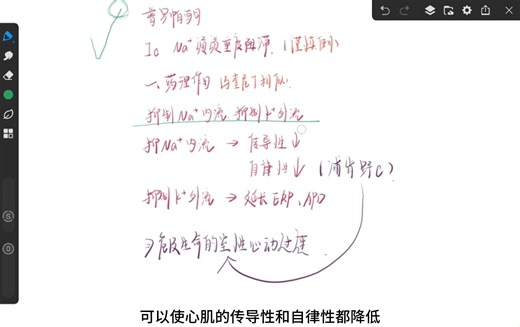 普罗帕酮
Ic Na⁺ 通道重度阻滞.
一、药理作用 与奎尼丁相似.
抑制Na⁺内流 抑制K⁺外流
抑Na⁺内流 → 传导性↓
自律性↓ (浦肯野C)
抑制K⁺外流 → 延长ERP、APD
危及生命的室性心动过速
可以使心肌的传导性和自律性都降低